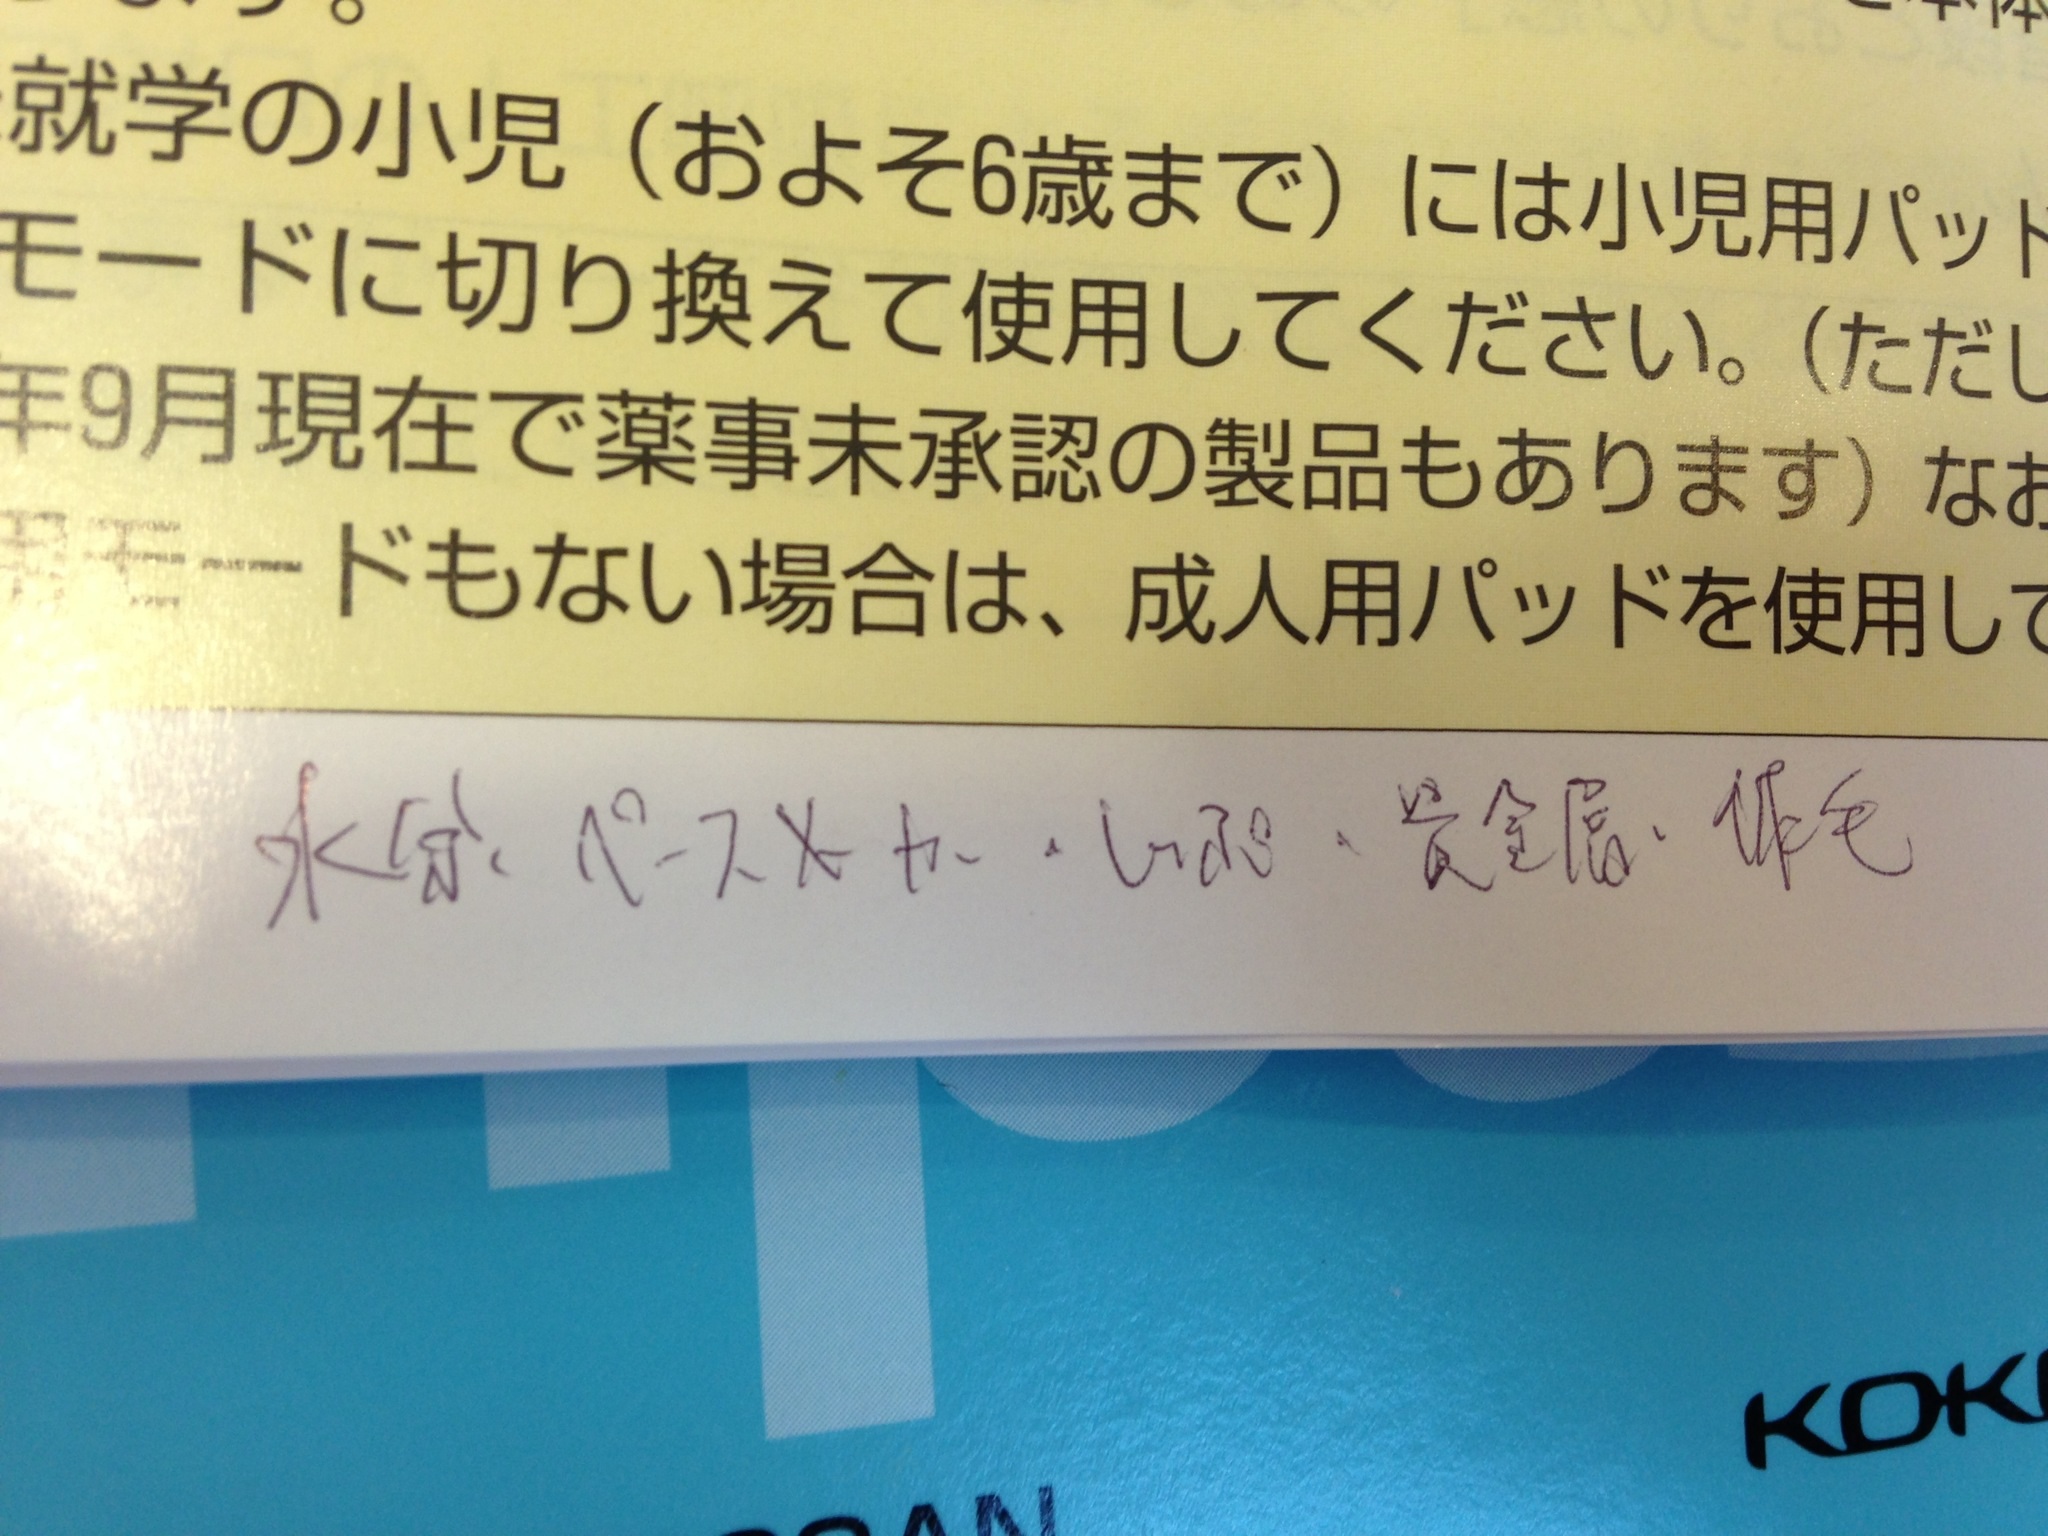 ます。
就学の小児（およそ6歳まで）には小児用パッド
モードに切り換えて使用してください。（ただし
年9月現在で薬事未承認の製品もあります）なお
用モードもない場合は、成人用パッドを使用して
水分、ペースメーカー・しっぷ・貴金属、体毛
KOK